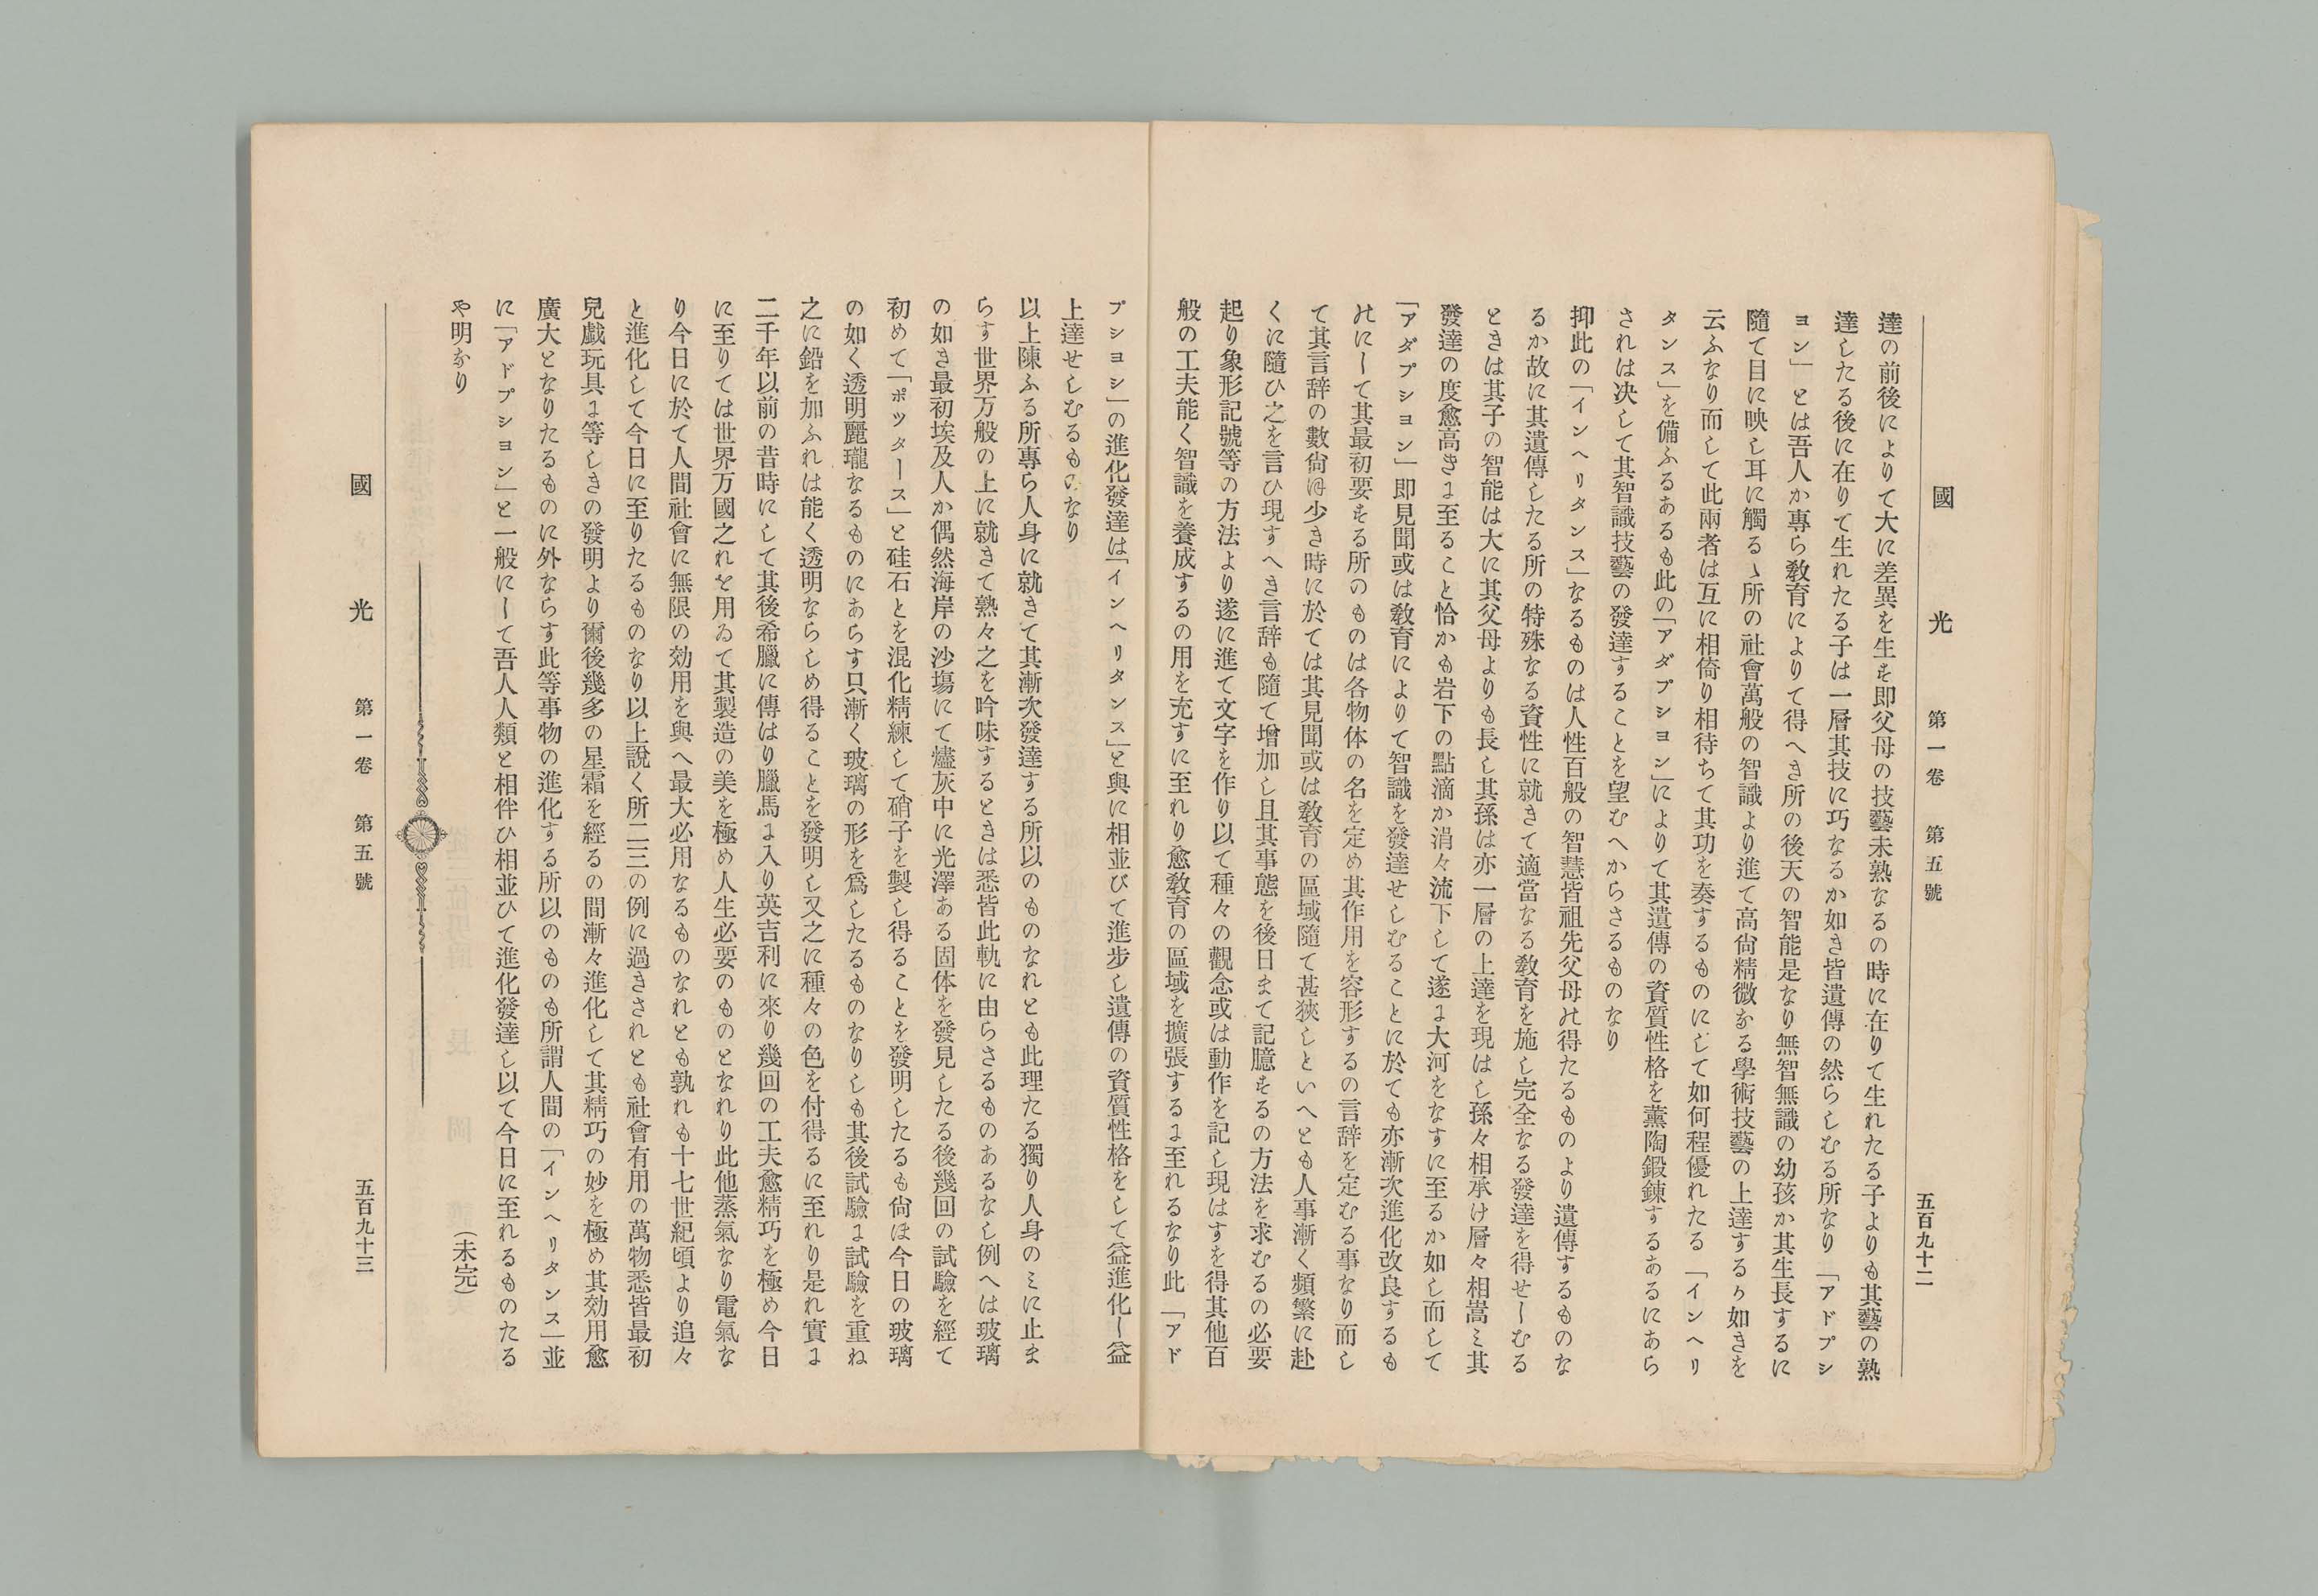 國光 第一卷 第五號 五百九十二
達の前後によりて大に差異を生を即父母の技藝未熟なるの時に在りて生れたる子よりも其藝の熟
達したる後に在りて生れたる子は一層其技に巧なるか如き皆遺傳の然らしむる所なり「アドプシ
ヨン」とは吾人か專ら敎育によりて得へき所の後天の智能是なり無智無識の幼孩か其生長するに
隨て目に映し耳に觸るゝ所の社會萬般の智識より進て高尙精微なる學術技藝の上達するヶ如きを
云ふなり而して此兩者は互に相倚り相待ちて其功を奏するものにして如何程優れたる「インヘリ
タンス」を備ふるあるも此の「アダプシヨン」によりて其遺傳の資質性格を薰陶鍛鍊するあるにあら
されは决して其智識技藝の發達することを望むへからさるものなり
抑此の「インヘリタンス」なるものは人性百般の智慧皆祖先父母ゟ得たるものより遺傳するものな
るか故に其遺傳したる所の特殊なる資性に就きて適當なる敎育を施し完全なる發達を得せしむる
ときは其子の智能は大に其父母よりも長し其孫は亦一層の上達を現はし孫々相承け層々相嵩ミ其
發達の度愈高きに至ること恰かも岩下の點滴か涓々流下して遂に大河をなすに至るか如し而して
「アダプシヨン」即見聞或は敎育によりて智識を發達せしむることに於ても亦漸次進化改良するも
のにして其最初要せる所のものは各物体の名を定め其作用を容形するの言辞を定むる事なり而し
て其言辞の數尙ほ少き時に於ては其見聞或は敎育の區域隨て甚狹しといへとも人事漸く頻繁に赴
くに隨ひ之を言ひ現すへき言辞も隨て增加し且其事態を後日まて記臆をるの方法を求むるの必要
起り象形記號等の方法より遂に進て文字を作り以て種々の觀念或は動作を記し現はすを得其他百
般の工夫能く智識を養成するの用を充すに至れり愈敎育の區域を擴張するに至れるなり此「アド
プシヨシ」の進化發達は「インヘリタンス」と與に相並びて進步し遺傳の資質性格をして益進化し益
上達せしむるものなり
以上陳ふる所專ら人身に就きて其漸次發達する所以のものなれとも此理たる獨り人身のミに止ま
らす世界万般の上に就きて熟々之を吟味するときは悉皆此軌に由らさるものあるなし例へは玻璃
の如き最初埃及人か偶然海岸の沙塲にて爐灰中に光澤ある固体を發見したる後幾回の試驗を經て
初めて「ポツタース」と硅石とを混化精練して硝子を製し得ることを發明したるも尙ほ今日の玻璃
の如く透明麗瓏なるものにあらす只漸く玻璃の形を爲したるものなりしも其後試驗に試驗を重ね
之に鉛を加ふれは能く透明ならしめ得ることを發明し又之に種々の色を付得るに至れり是れ實に
二千年以前の昔時にして其後希臘に傳はり臘馬に入り英吉利に來り幾回の工夫愈精巧を極め今日
に至りては世界万國之れを用ゐて其製造の美を極め人生必要のものとなれり此他蒸氣なり電氣な
り今日に於て人間社會に無限の効用を與へ最大必用なるものなれとも孰れも十七世紀頃より追々
と進化して今日に至りたるものなり以上說く所二三の例に過きされとも社會有用の萬物悉皆最初
兒戲玩具に等しきの發明より爾後幾多の星霜を經るの間漸々進化して其精巧の妙を極め其効用愈
廣大となりたるものに外ならす此等事物の進化する所以のものも所謂人間の「インヘリタンス」並
に「アドプシヨン」と一般にして吾人人類と相伴ひ相並ひて進化發達し以て今日に至れるものたる
や明なり (未完)
國光 第一卷 第五號 五百九十三